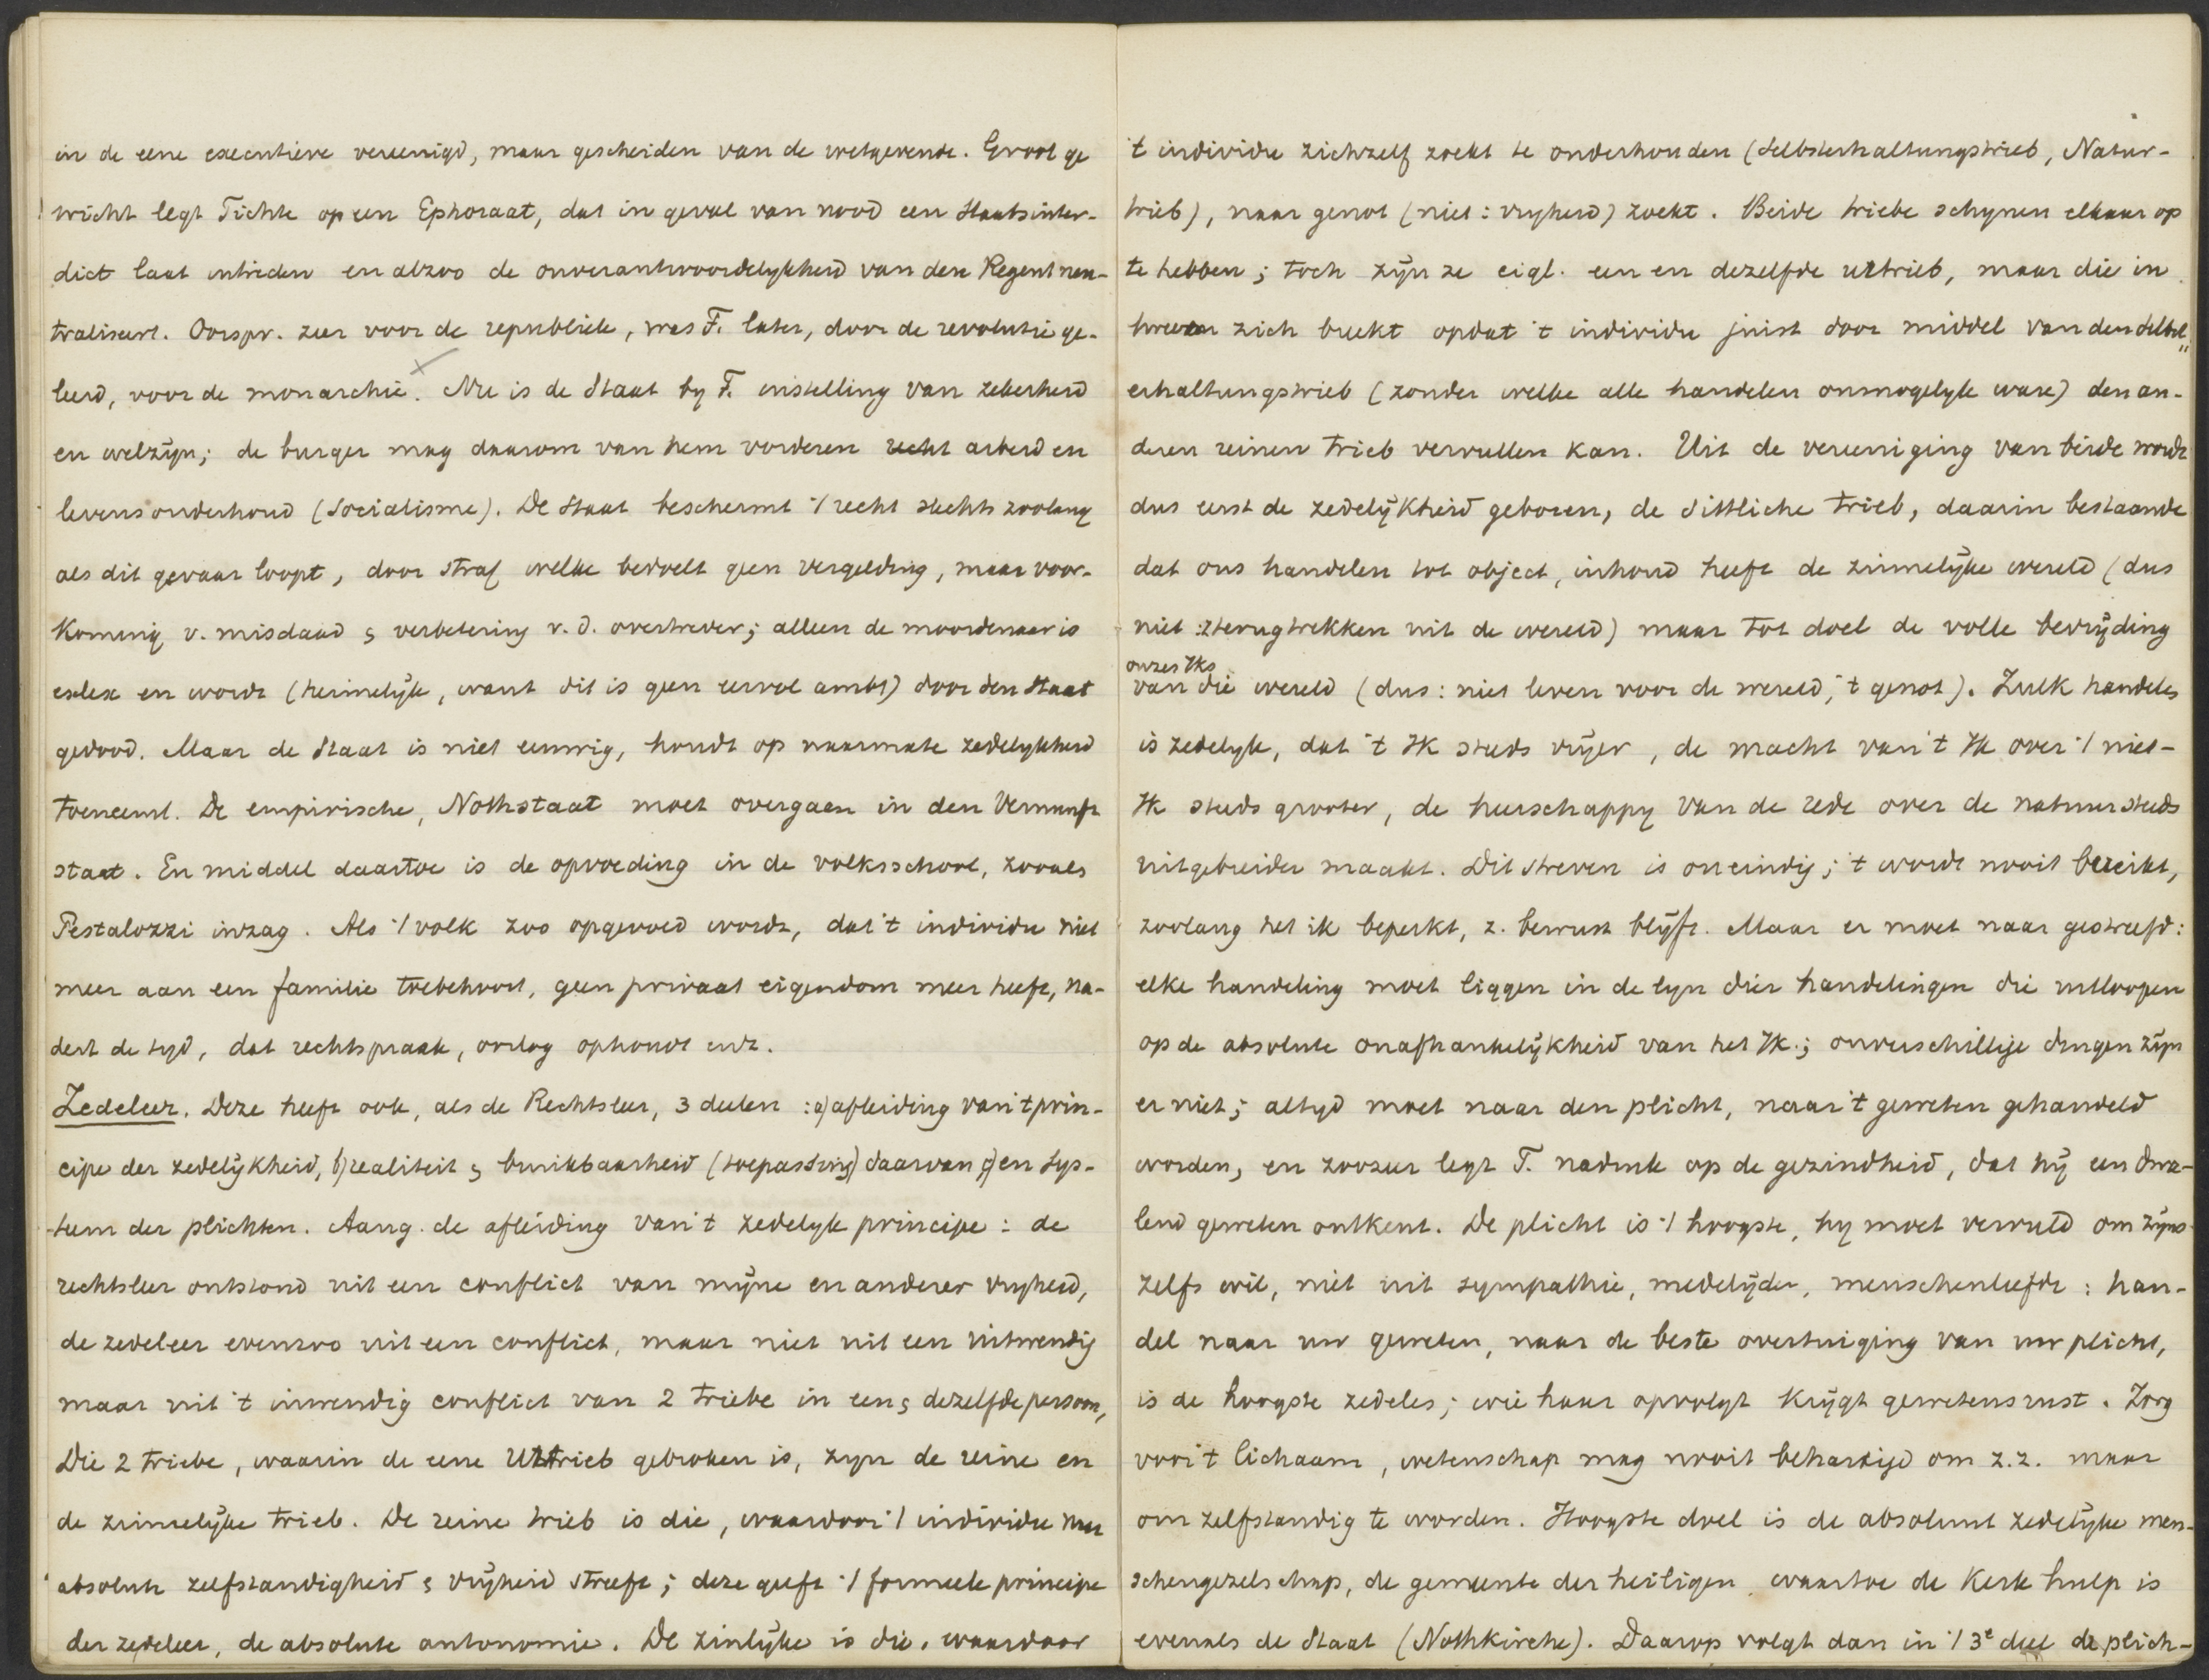 in de eene executieve vereenigd, maar gescheiden van de wetgevende. Groot ge
wicht legt Fichte op een Ephoraat, dat in geval van nood een Staatsinter-
dict laat intreden en alzoo de onverantwoordelykheid van den Regent neu-
traliseert. Oorspr. zeer voor de republiek, was F. later, door de revolutie ge-
leerd, voor de monarchie. Nu is de Staat by F. instelling van zekerheid
en welzijn; de burger mag daarom van hem vorderen recht arbeid en
levensonderhoud (Socialisme). De Staat beschermt 't recht slechts zoolang
als dit gevaar loopt, door straf welke bedoelt geen vergelding, maar voor-
koming v. misdaad & verbetering v.d. overtreder; alleen de moordenaar is
exlex en wordt (heimelijk, want dit is geen eervol ambt) door den Staat
gedood. Maar de Staat is niet eeuwig, houdt op naarmate zedelykheid
toeneemt. De empirische, Nothstaat moet overgaan in den Vernunft
staat. En middel daartoe is de opvoeding in de volksschool, zooals
Pestalozzi inzag. Als 't volk zoo opgevoed wordt, dat 't individu niet
meer aan een familie toebehoort, geen privaat eigendom meer heeft, na-
dert de tyd, dat rechtspraak, oorlog ophoudt enz.
Zedeleer. Deze heeft ook, als de Rechtsleer, 3 deelen : a) afleiding van 't prin-
cipe der zedelijkheid, b) realiteit & bruikbaarheid (toepassing) daarvan c) en sys-
teem der plichten. Aang. de afleiding van 't zedelyk principe : de
rechtsleer ontstond uit een conflict van mijne en anderer vryheid,
de zedeleer evenzoo uit een conflict, maar niet uit een uitwendig
maar uit 't inwendig conflict van 2 triebe in een & dezelfde persoon,
Die 2 triebe, waarin de eene Urtrieb gebroken is, zyn de reine en
de zinnelijke trieb. De reine trieb is die, waardoor 't individu naar
absolute zelfstandigheid & vrijheid streeft; deze geeft 't formeele principe
der zedeleer, de absolute autonomie. De zinlijke is die, waardoor
't individu zichzelf zoekt te onderhouden (Selbsterhaltungstrieb, Natur-
trieb), naar genot (niet : vryheid) zoekt. Beide triebe schynen elkaar op
te hebben; toch zijn ze eigl. een en dezelfde urtrieb, maar die in
tweeen zich breekt opdat 't individu juist door middel van den Selbst
erhaltungstrieb (zonder welke alle handelen onmogelyk ware) den an-
deren reinen trieb vervullen kan. Uit de vereeniging van beide wordt
dus eerst de zedelijkheid geboren, de sittliche trieb, daarin bestaande
dat ons handelen tot object, inhoud heeft de zinnelijke wereld (dus
niet : terugtrekken uit de wereld) maar tot doel de volle bevrijding
onzes Iks
van die wereld (dus : niet leven voor de wereld, 't genot). Zulk handelen
is zedelyk, dat 't Ik steeds vrijer, de macht van 't Ik over 't niet-
Ik steeds grooter, de heerschappy van de rede over de natuur steeds
uitgebreider maakt. Dit streven is oneindig; 't wordt nooit bereikt,
zoolang het ik beperkt, z. bewust blijft. Maar er moet naar gestreefd :
elke handeling moet liggen in de lyn dier handelingen die uitloopen
op de absolute onafhankelijkheid van het Ik.; onverschillige dingen zijn
er niet; altyd moet naar den plicht, naar 't geweten gehandeld
worden, en zoozeer legt F. nadruk op de gezindheid, dat hij een dwa-
lend geweten ontkent. De plicht is 't hoogste, hy moet vervuld om zijns
zelfs wil, niet uit sympathie, medelijden, menschenliefde : han-
del naar uw geweten, naar de beste overtuiging van uw plicht,
is de hoogste zedeles; wie haar opvolgt krijgt gewetensrust. Zorg
voor 't lichaam, wetenschap mag nooit behartigd om z.z. maar
om zelfstandig te worden. Hoogste doel is de absoluut zedelijke men-
schengezelschap, de gemeente der heiligen, waartoe de Kerk hulp is
evenals de Staat (Nothkirche). Daarop volgt dan in 't 3e deel de plich-